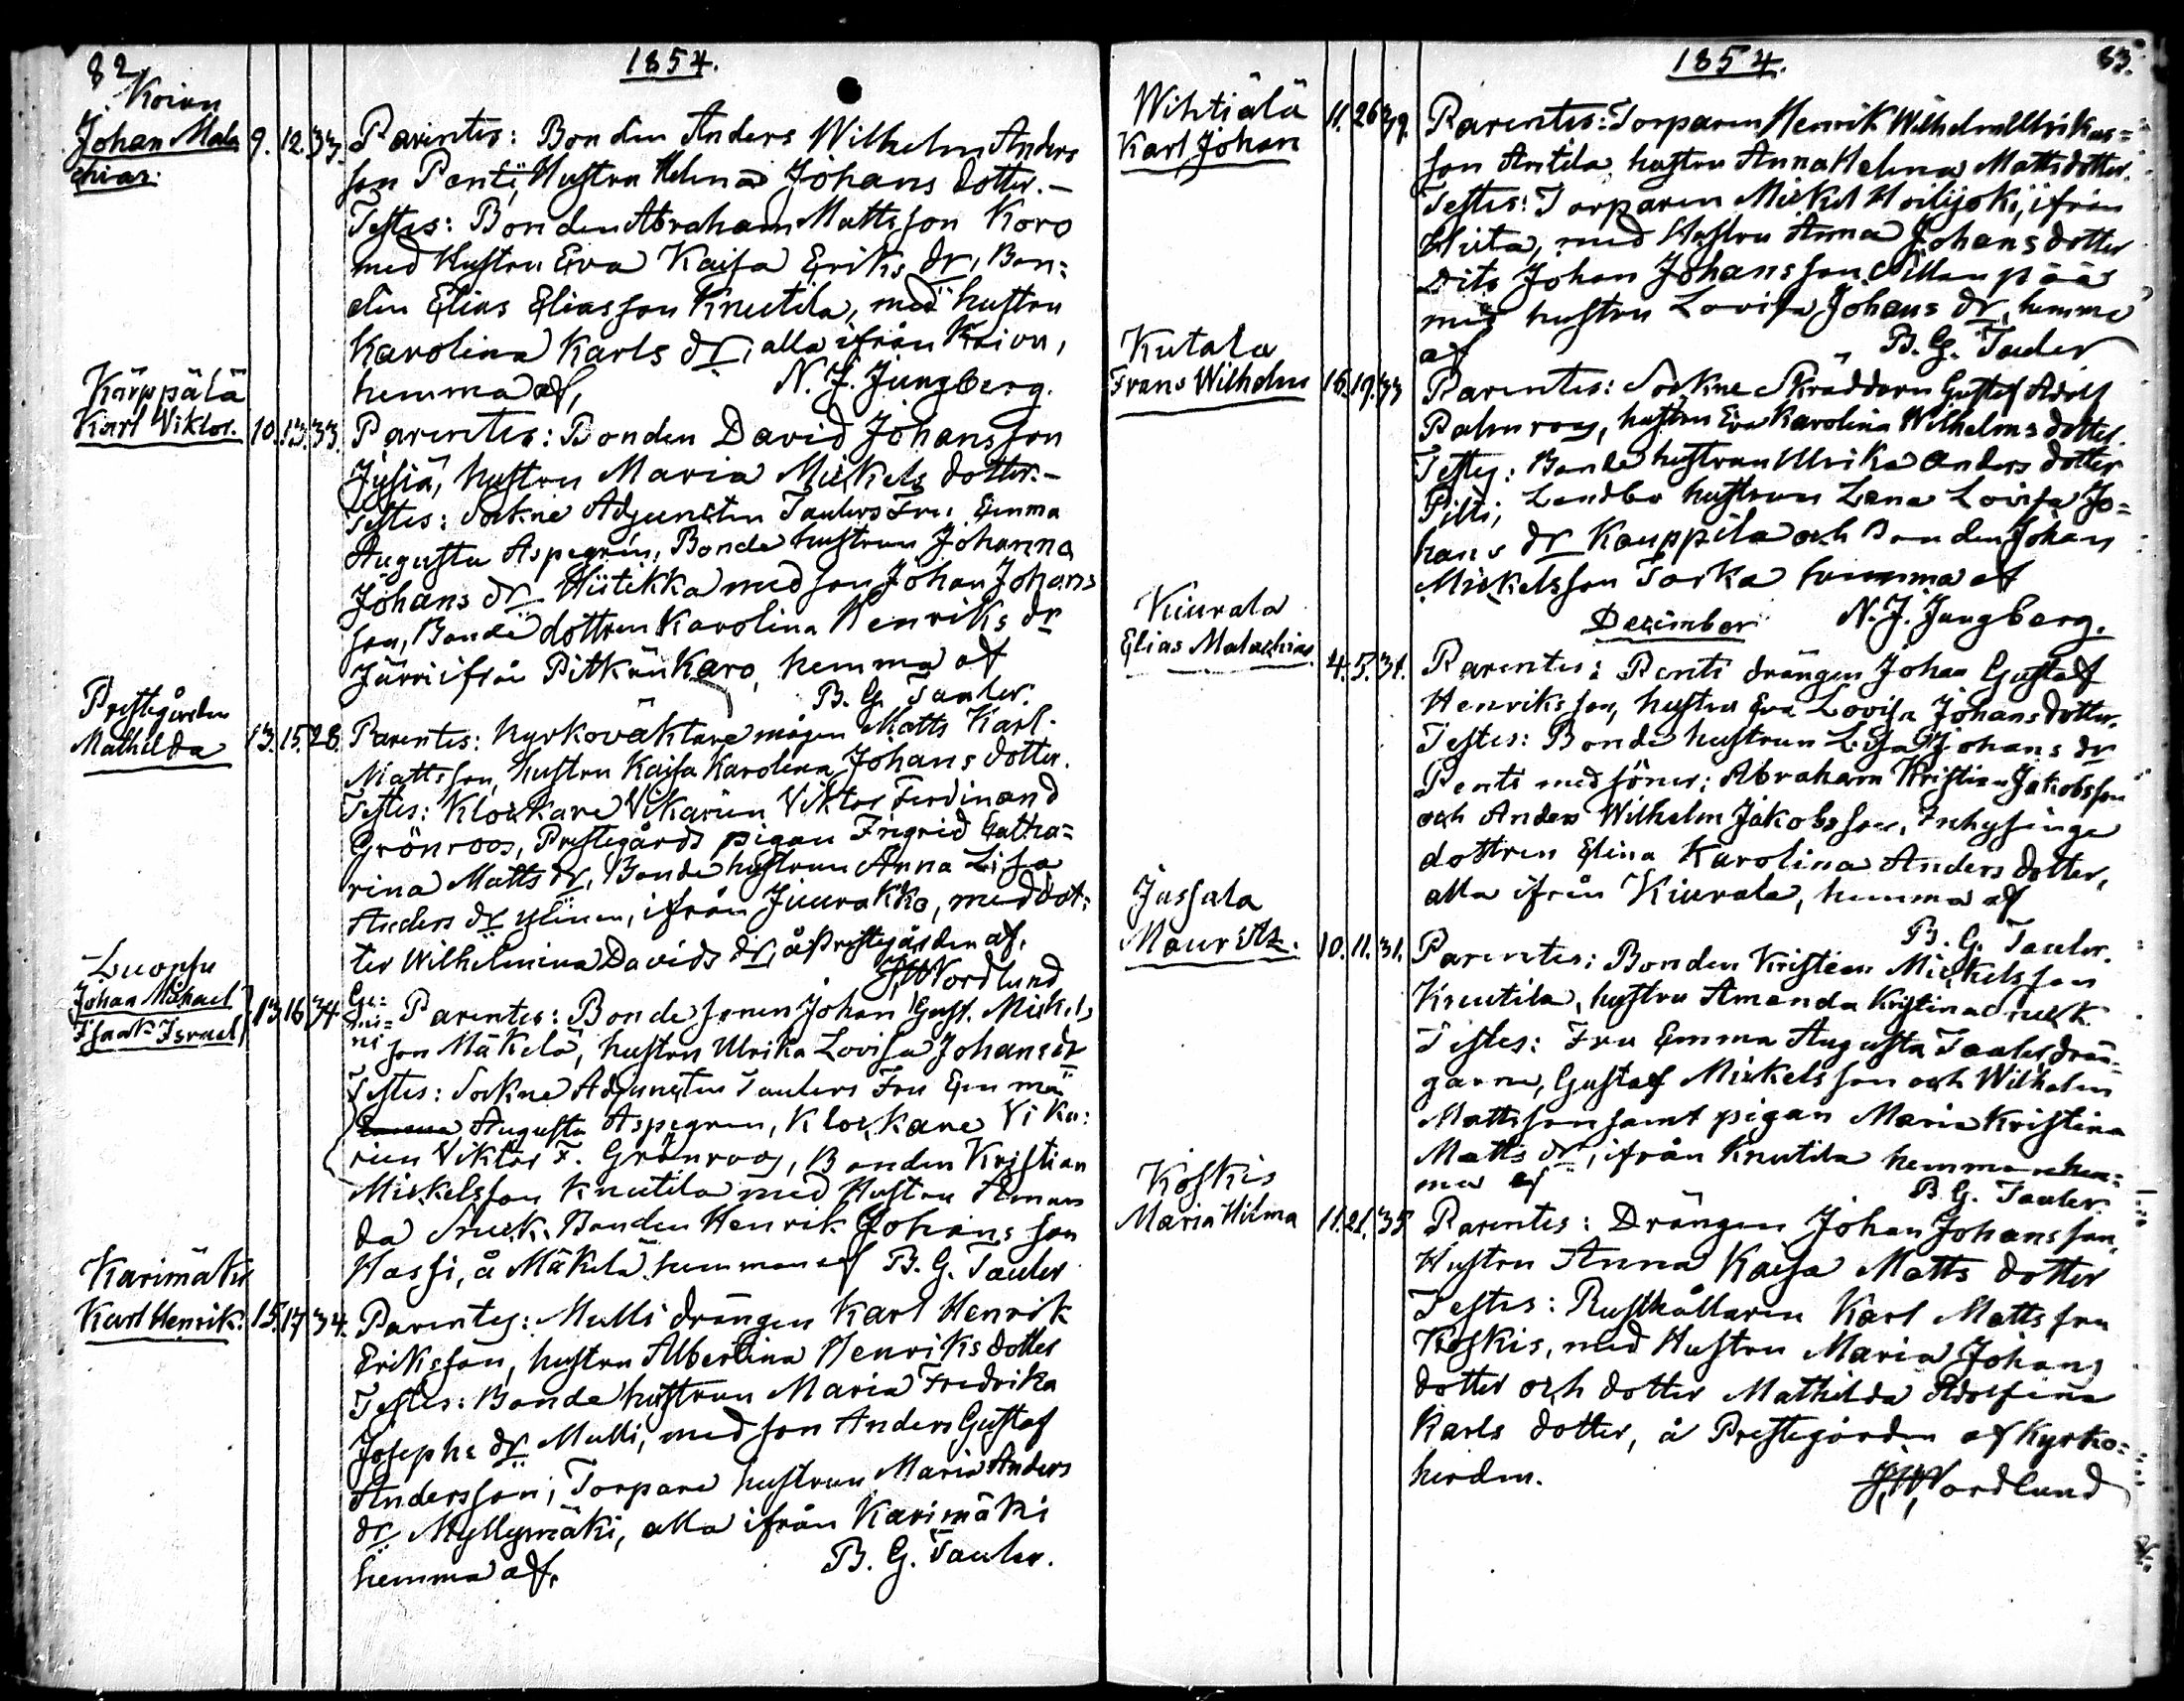 82
1854.
Koivu
Johan Mala
chias.
9. 12. 33. Parentes: Bonden Anders Wilhelm Anders
son Penti, Hustru Helena Johans dotter.-
Testes: Bonden Abraham Mattsson Koro
med Hustru Eva Kaisa Eriks dr, Bon-
den Elias Eliasson Knutila, med hustru
Karolina Karls dr, alla ifrån Koivu,
hemma af, N. J. Jungberg.
Kärppälä
Karl Viktor. 10. 13. 33. Parentes: Bonden David Johansson
hustru Maria Mickels dotter.-
Testes: Sokne Adjuncten Taulers Fru Emma
Augusta Aspegrén, Bonde hustrun Johanna
Johans dr Hiitikka med son Johan Johans
son, Bonde dottren Karolina Henriks dr
Järvi ifrån Pitkän Karo, hemma af
B. G. Tauler.
Prestegården
Mathilda 13. 15. 28. Parentes: Kyrkoväktare mågen Matts Karl
Mattsson, hustru Kaisa Karolina Johans dotter.
Testes: Klockare Vikarien Viktor Ferdinand
Grönroos, Prestegårds pigan Ingrid Catha-
rina Matts dr, Bonde hustrun Anna Lisa
Anders dr Ylinen, ifrån Juurakko, med dot-
ter Wilhelmina Davids dr, å Prestegården af.
Nordlund
Luopsu
Johan Michael
Isaak Israel 13. 16. 34. Ge-
mi-
ni Parentes: Bonde sonen Johan Gust. Mickels
son Mäkelä, hustru Ulrika Lovisa Johans dr
Testes: Sokne Adjuncten Taulers Fru Emma
Augusta Aspegren, Klockare Vika-
rien Viktor F. Grönroos, Bonden Kristian
Mickelsson Knutila med Hustru Aman
da Bonden Henrik Johans son
Hassi, å Mäkelä hemman af B. G. Tauler
Karimäki
Karl Henrik. 15. 17. 34. Parentes: Mulli drängen Karl Henrik
Eriksson, hustru Albertina Henriks dotter
Testes: Bonde hustrun Maria Fredrika
Josephs dr Mulli, med son Anders Gustaf
Andersson, Torpare hustrun Maria Anders
dr Myllymäki, alla ifrån Karimäki
hemma af. B. G. Tauler.
1854. 83.
Wihtiälä
Karl Johan 11. 26. 39. Parentes: Torparen Henrik Wilhelm Ulrikas-
son Antila, hustru Anna Helena Matts dotter.
Testes: Torparen Mickel ifrån
med Hustru Anna Johans dotter
Dito Johan Johansson
med hustru Lovisa Johans dr, hemma
af B. G. Tauler
Kutala
Frans Wilhelm 16. 19. 33 Parentes: Sokne Skräddaren Gustaf Adolf
Palmroos, hustru Eva Karolina Wilhelms dotter.
Testes: Bonde hustrun Ulrika Anders dotter
Pilti, Landbo hustrun Lena Lovisa Jo-
hans dr Kauppila och Bonden Johan
Mickelsson Torka hemma af
December N. J. Jungberg.
Kiurala
Elias Malachias 4. 5. 31. Parentes: Penti drängen Johan Gustaf
Henriksson, hustru Eva Lovisa Johans dotter.
Testes: Bonde hustrun Lisa Johans dr
Penti med söner: Abraham Kristian Jakobsson
och Anders Wilhelm Jakobsson, Inhysinge
dottren Elina Karolina Anders dotter,
alla ifrån Kiurala, hemma af
B. G. Tauler.
Jussala
Mauritz. 10. 11. 31. Parentes: Bonden Kristian Mickelsson
Knutila, hustru Amanda Kristina
Testes: Fru Emma Augusta Tauler, drän-
garne, Gustaf Mickelsson och Wilhelm
Mattsson samt pigan Maria Kristina
Matts dr, ifrån Knutila hemman hem-
ma af B. G. Tauler.
Koskis
Maria Hilma 11. 21. 35 Parentes: Drängen Johan Johansson,
Hustru Anna Kaisa Matts dotter
Testes: Rusthållaren Karl Mattsson
Koskis, med Hustru Maria Johans
dotter och dotter Mathilda Adolfina
Karls dotter, å Prestegården af Kyrko-
herden. Nordlund